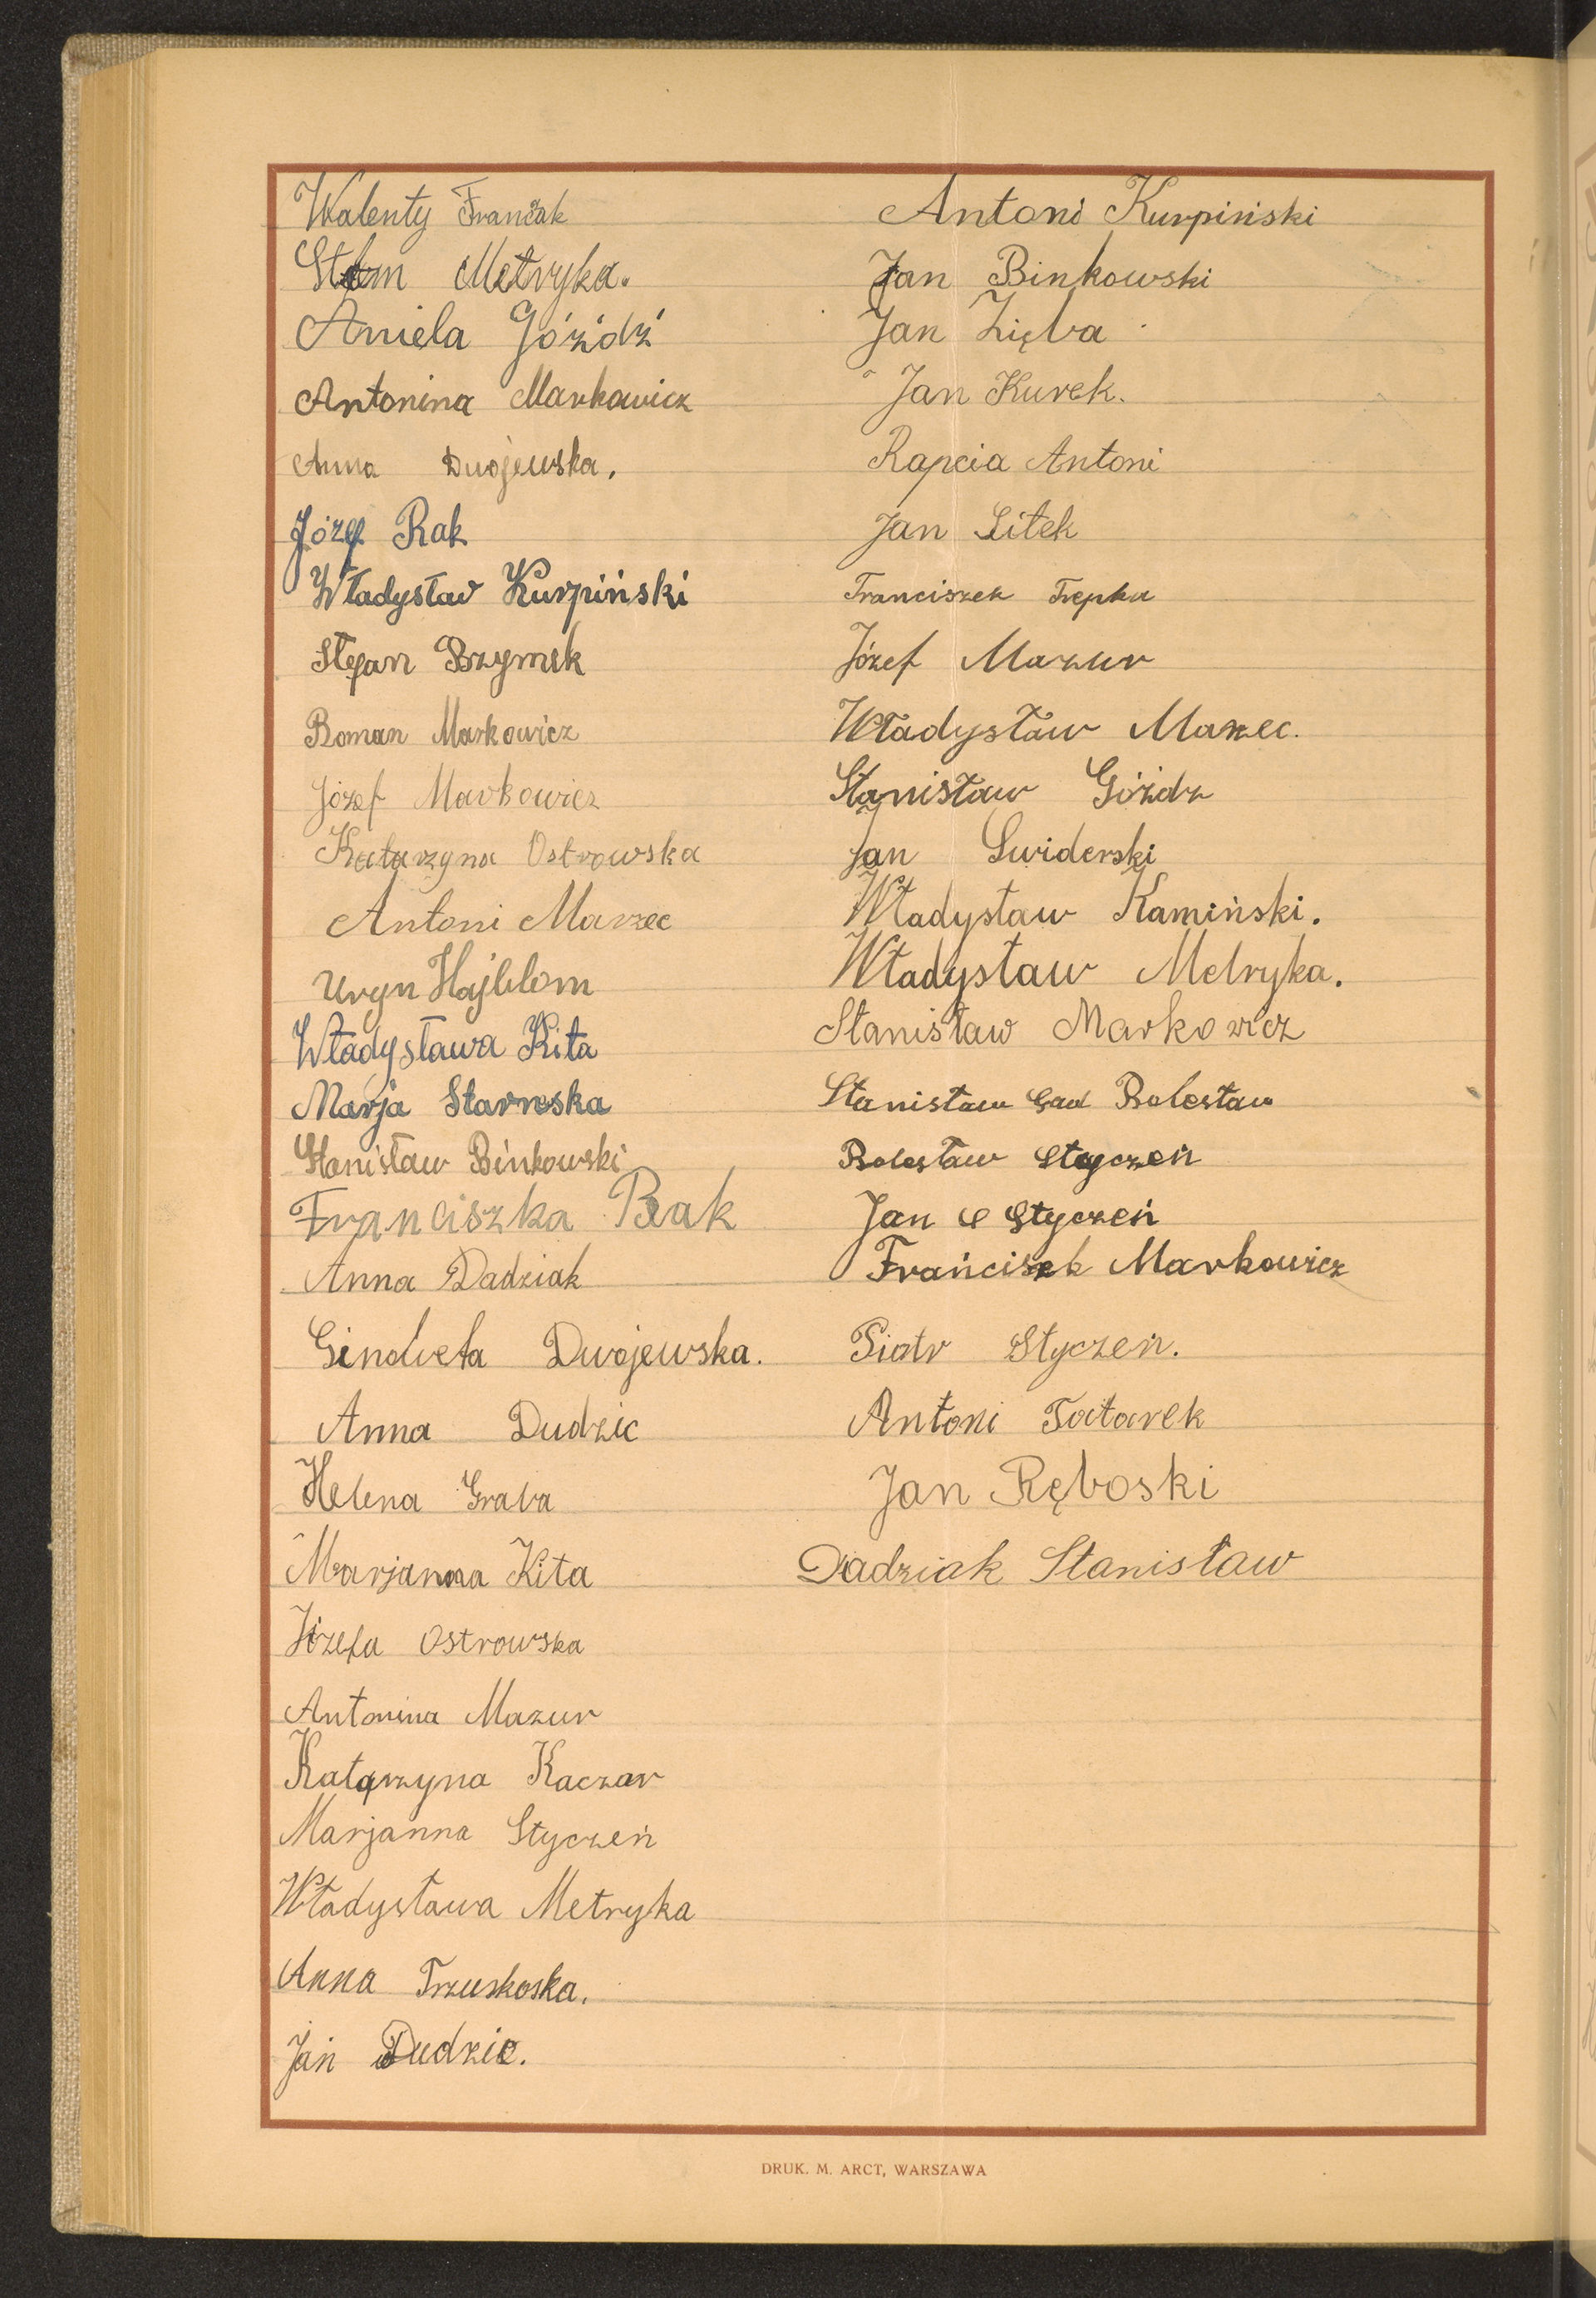 Walenty Franczak
Stefan Metryka.
Aniela Góźdź
Antonina Markowicz
Anna Dwojewska.
Józef Rak
Władysław Kurpiński
Stefan Brzymek
Roman Markowicz
Józef Markowicz
Katarzyna Ostrowska
Antoni Marzec
Uryn Hajblom
Władysława Kita
Marja
Stanisław Binkowski
Franciszka Bak
Anna Dadziak
Genowefa Dwojewska.
Anna Dudzic
Helena Graba
Marjanna Kita
Józefa Ostrowska
Antonina Mazur
Katarzyna Kaczar
Marjanna Styczeń
Władysława Metryka
Anna Trzuskoska.
Jan Dudzic.
Antoni Kurpiński
Jan Binkowski
Jan Zięba
Jan Kurek.
Rapcia Antoni
Jan Litek
Franciszek Trepka
Józef Mazur
Władysław Marzec.
Stanisław Góźdz
Jan Swiderski
Władysław Kamiński.
Władysław Metryka.
Stanisław Markowicz
Stanisław Gad Bolesław
Bolesław Styczeń
Jan Styczeń
Frańciszek Markowicz
Piotr Styczeń.
Antoni Tatarek
Jan Ręboski
Dadziak Stanisław
DRUK. M. ARCT, WARSZAWA